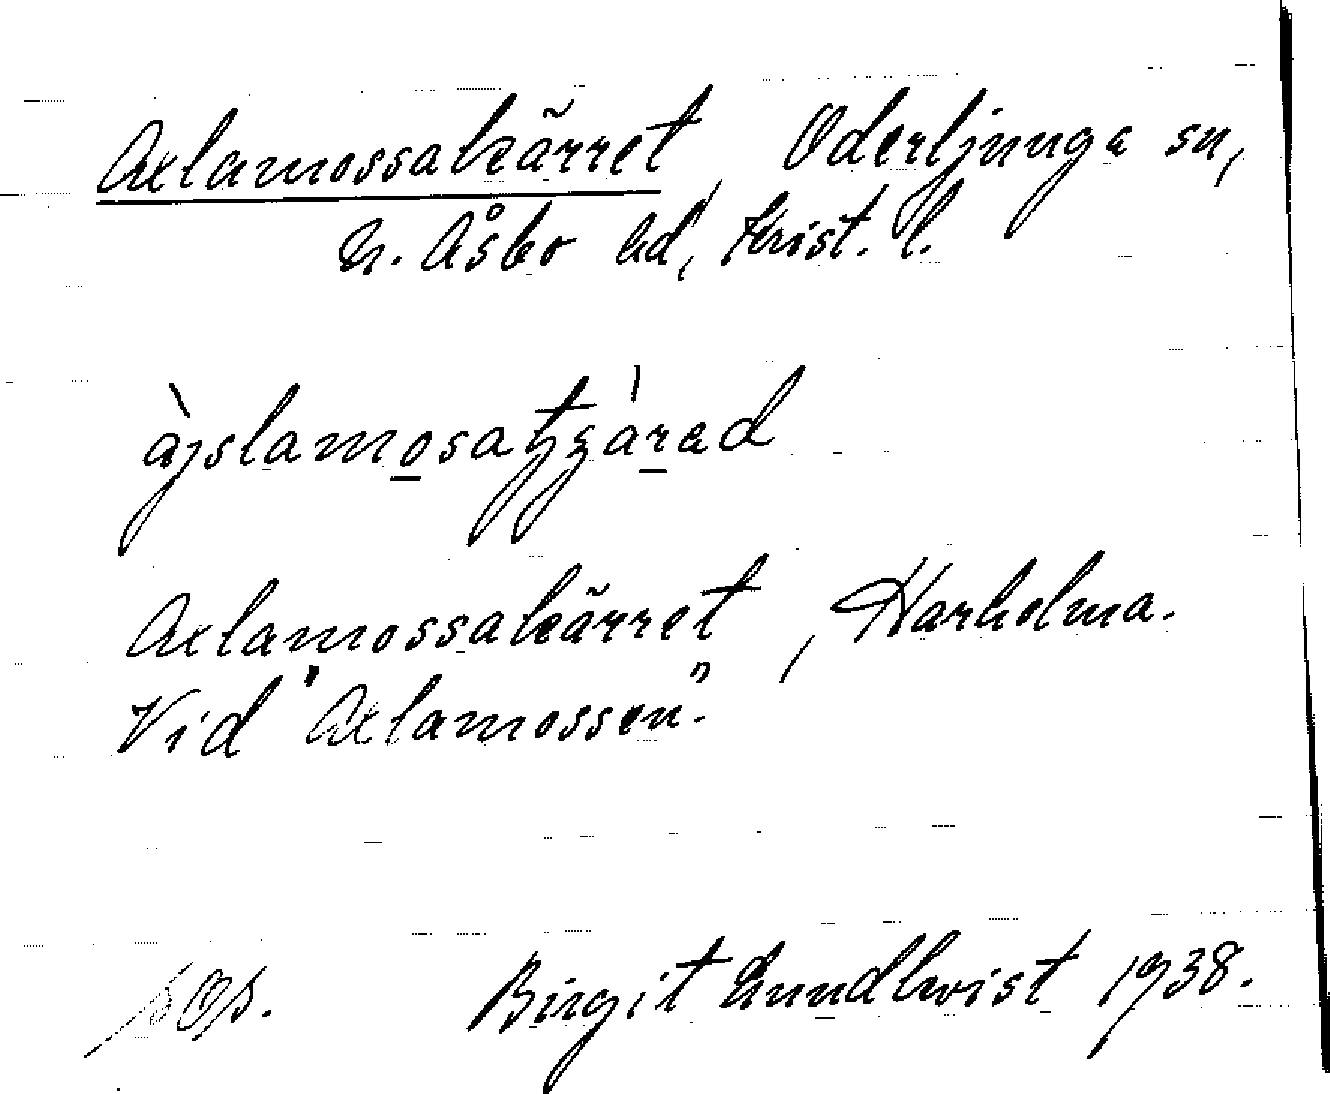 Axlamossakärret, Oderljunga sn,
N. Åsbo hd, Krist. l.
Axlamossakärret, Harholma.
Vid "Axlamossen".
Birgit Lundkvist 1938.